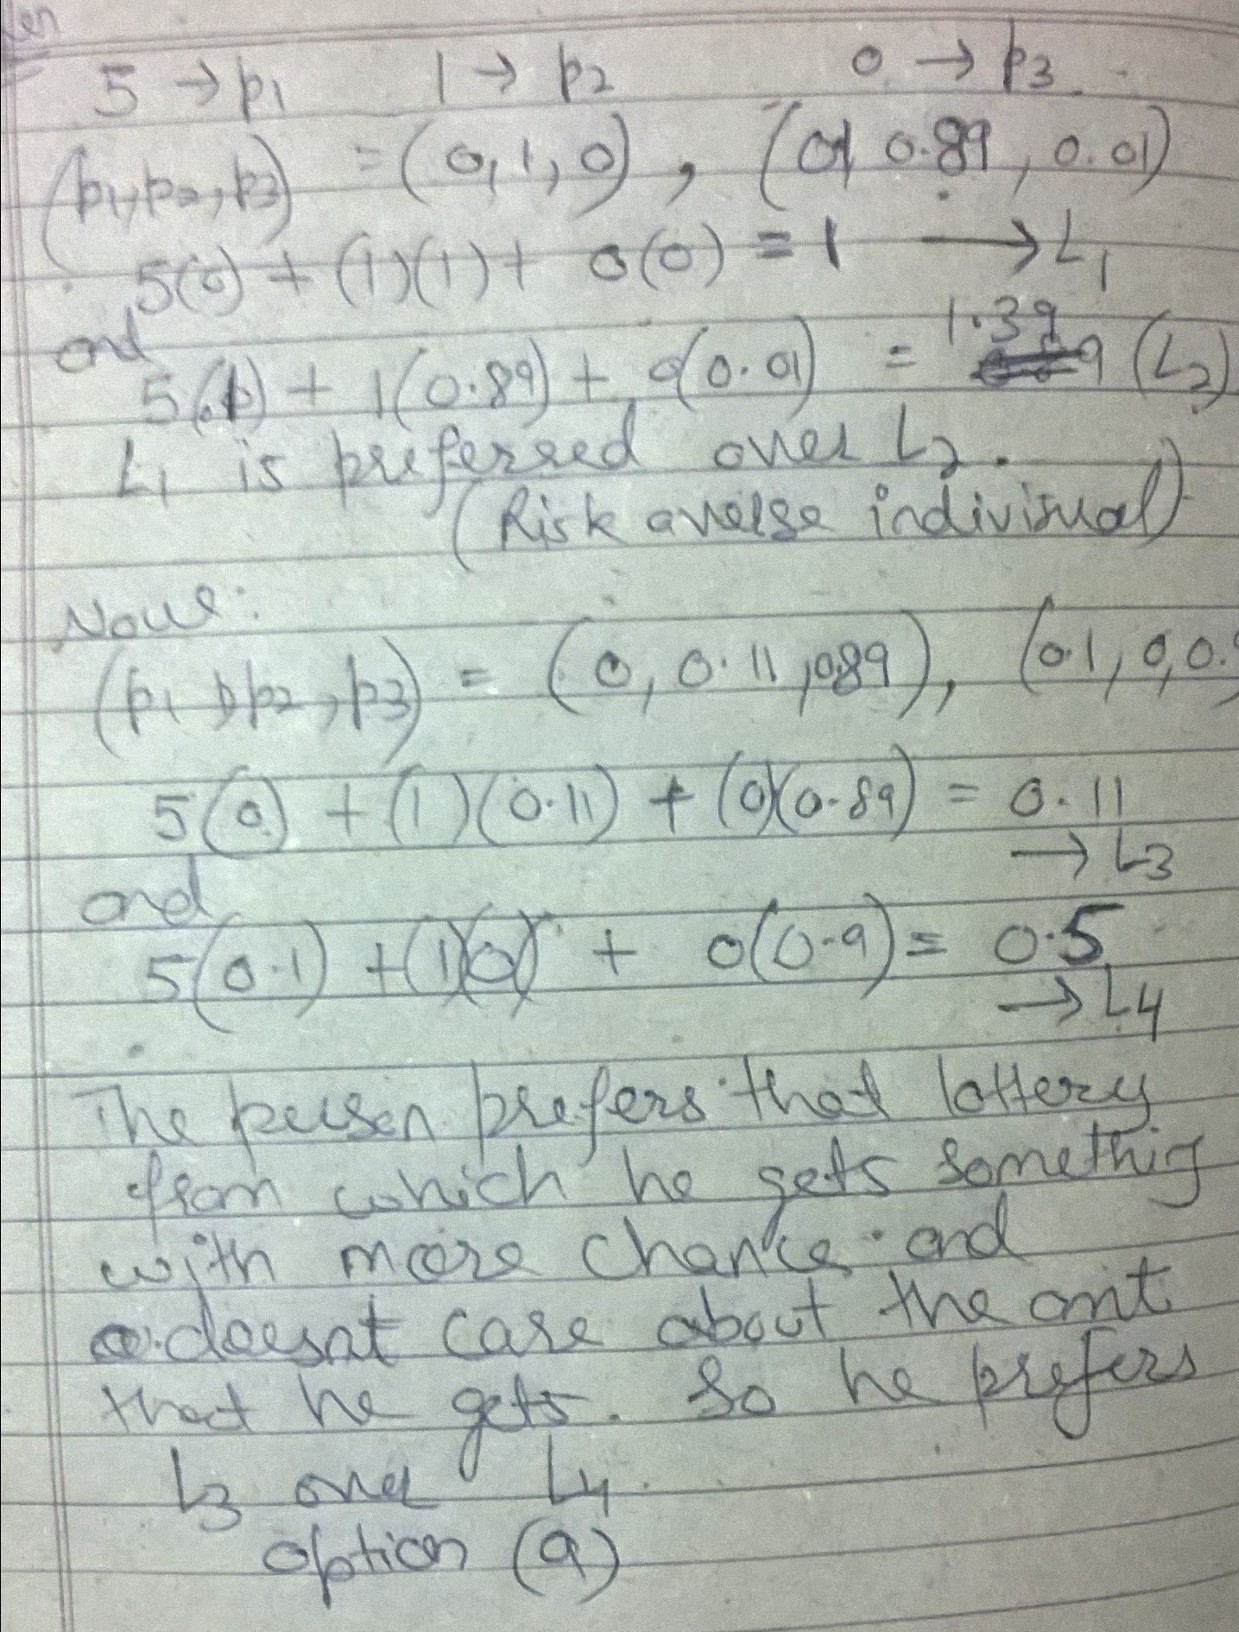 5 → p1 1 → p2 0 → p3
(p1, p2, p3) = (0, 1, 0), (01, 0.89, 0.01)
5(0) + (1)(1) + 0(0) = 1 → L1
and
5(.1) + 1(0.89) + 0(0.01) = 1.39 (L2)
L1 is preferred over L2.
(Risk averse indivisual)
Now:
(p1, p2, p3) = (0, 0.11, 0.89), (0.1, 0, 0.9
5(0) + (1)(0.11) + (0)(0.89) = 0.11
→ L3
and
5(0.1) + (1)(0) + 0(0.9) = 0.5
→ L4
The person prefers that lottery
from which he gets somethig
with more chance and
doesnt care about the amt
that he gets. So he prefers
L3 over L4.
option (a)